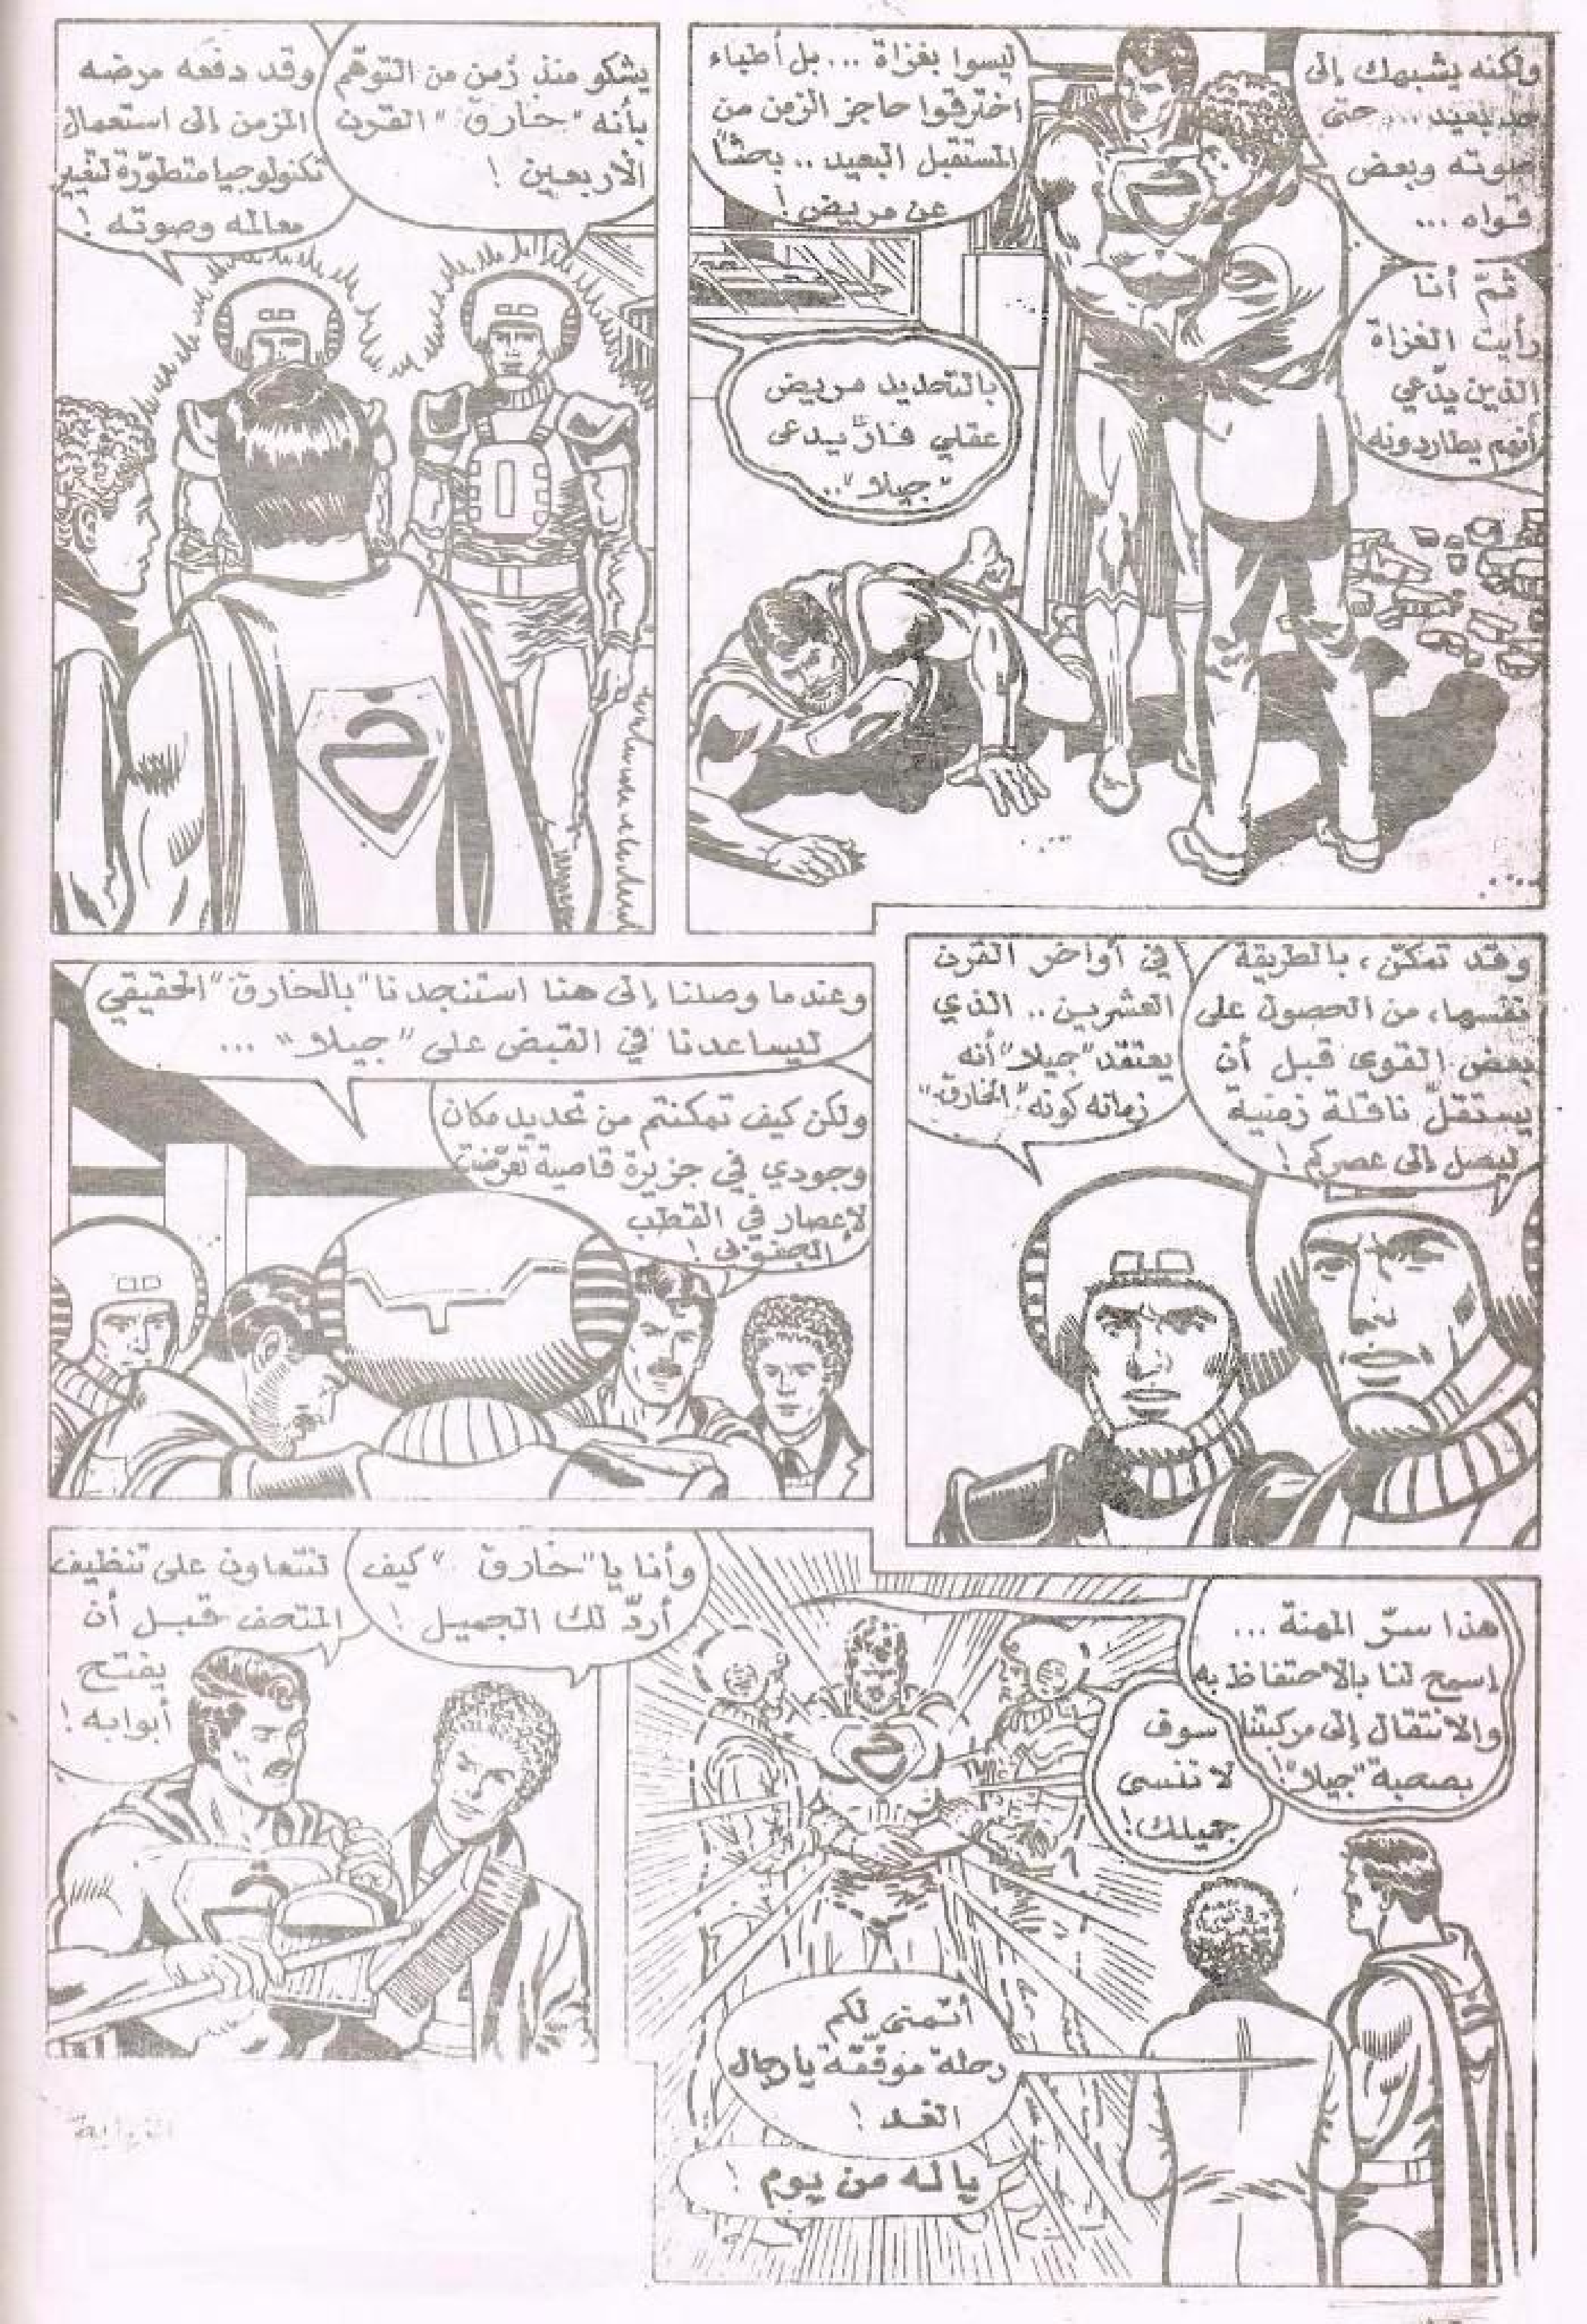 ولكنه يشبهك إلى
حد بعيد ... حتى
صوته وبعض
قواه ...
ثمّ أنا
رأيت الغزاة
الذين يدّعي
أنهم يطاردونه!
ليسوا بغزاة ... بل أطباء
اخترقوا حاجز الزمن من
المستقبل البعيد .. بحثاً
عن مريض!
بالتحديد مريض
عقلي فارّ يدعى
"جيلا" ..
يشكو منذ زمن من التوهّم
بأنه "خارق" القرن
الأربعين!
وقد دفعه مرضه
المزمن إلى استعمال
تكنولوجيا متطوّرة لتغيير
معالمه وصوته!
وقد تمكّن، بالطريقة
نفسها، من الحصول على
بعض القوى قبل أن
يستقلّ ناقلة زمنية
ليصل إلى عصركم!
في أواخر القرن
العشرين .. الذي
يعتقد "جيلا" أنه
زمانه كونه "الخارق"
وعندما وصلنا إلى هنا استنجدنا "بالخارق" الحقيقي
ليساعدنا في القبض على "جيلا" ...
ولكن كيف تمكنتم من تحديد مكان
وجودي في جزيرة قاصية تعرّضت
لإعصار في القطب
الجنوبي!
هذا سرّ المهنة ...
إسمح لنا بالاحتفاظ به
والانتقال إلى مركبتنا
بصحبة "جيلا"!
سوف
لا ننسى
جميلك!
أتمنى لكم
رحلة موفّقة يا رجال
الغد!
يا له من يوم!
وأنا يا "خارق" كيف
أردّ لك الجميل!
لنتعاون على تنظيف
المتحف قبل أن
يفتح
أبوابه!